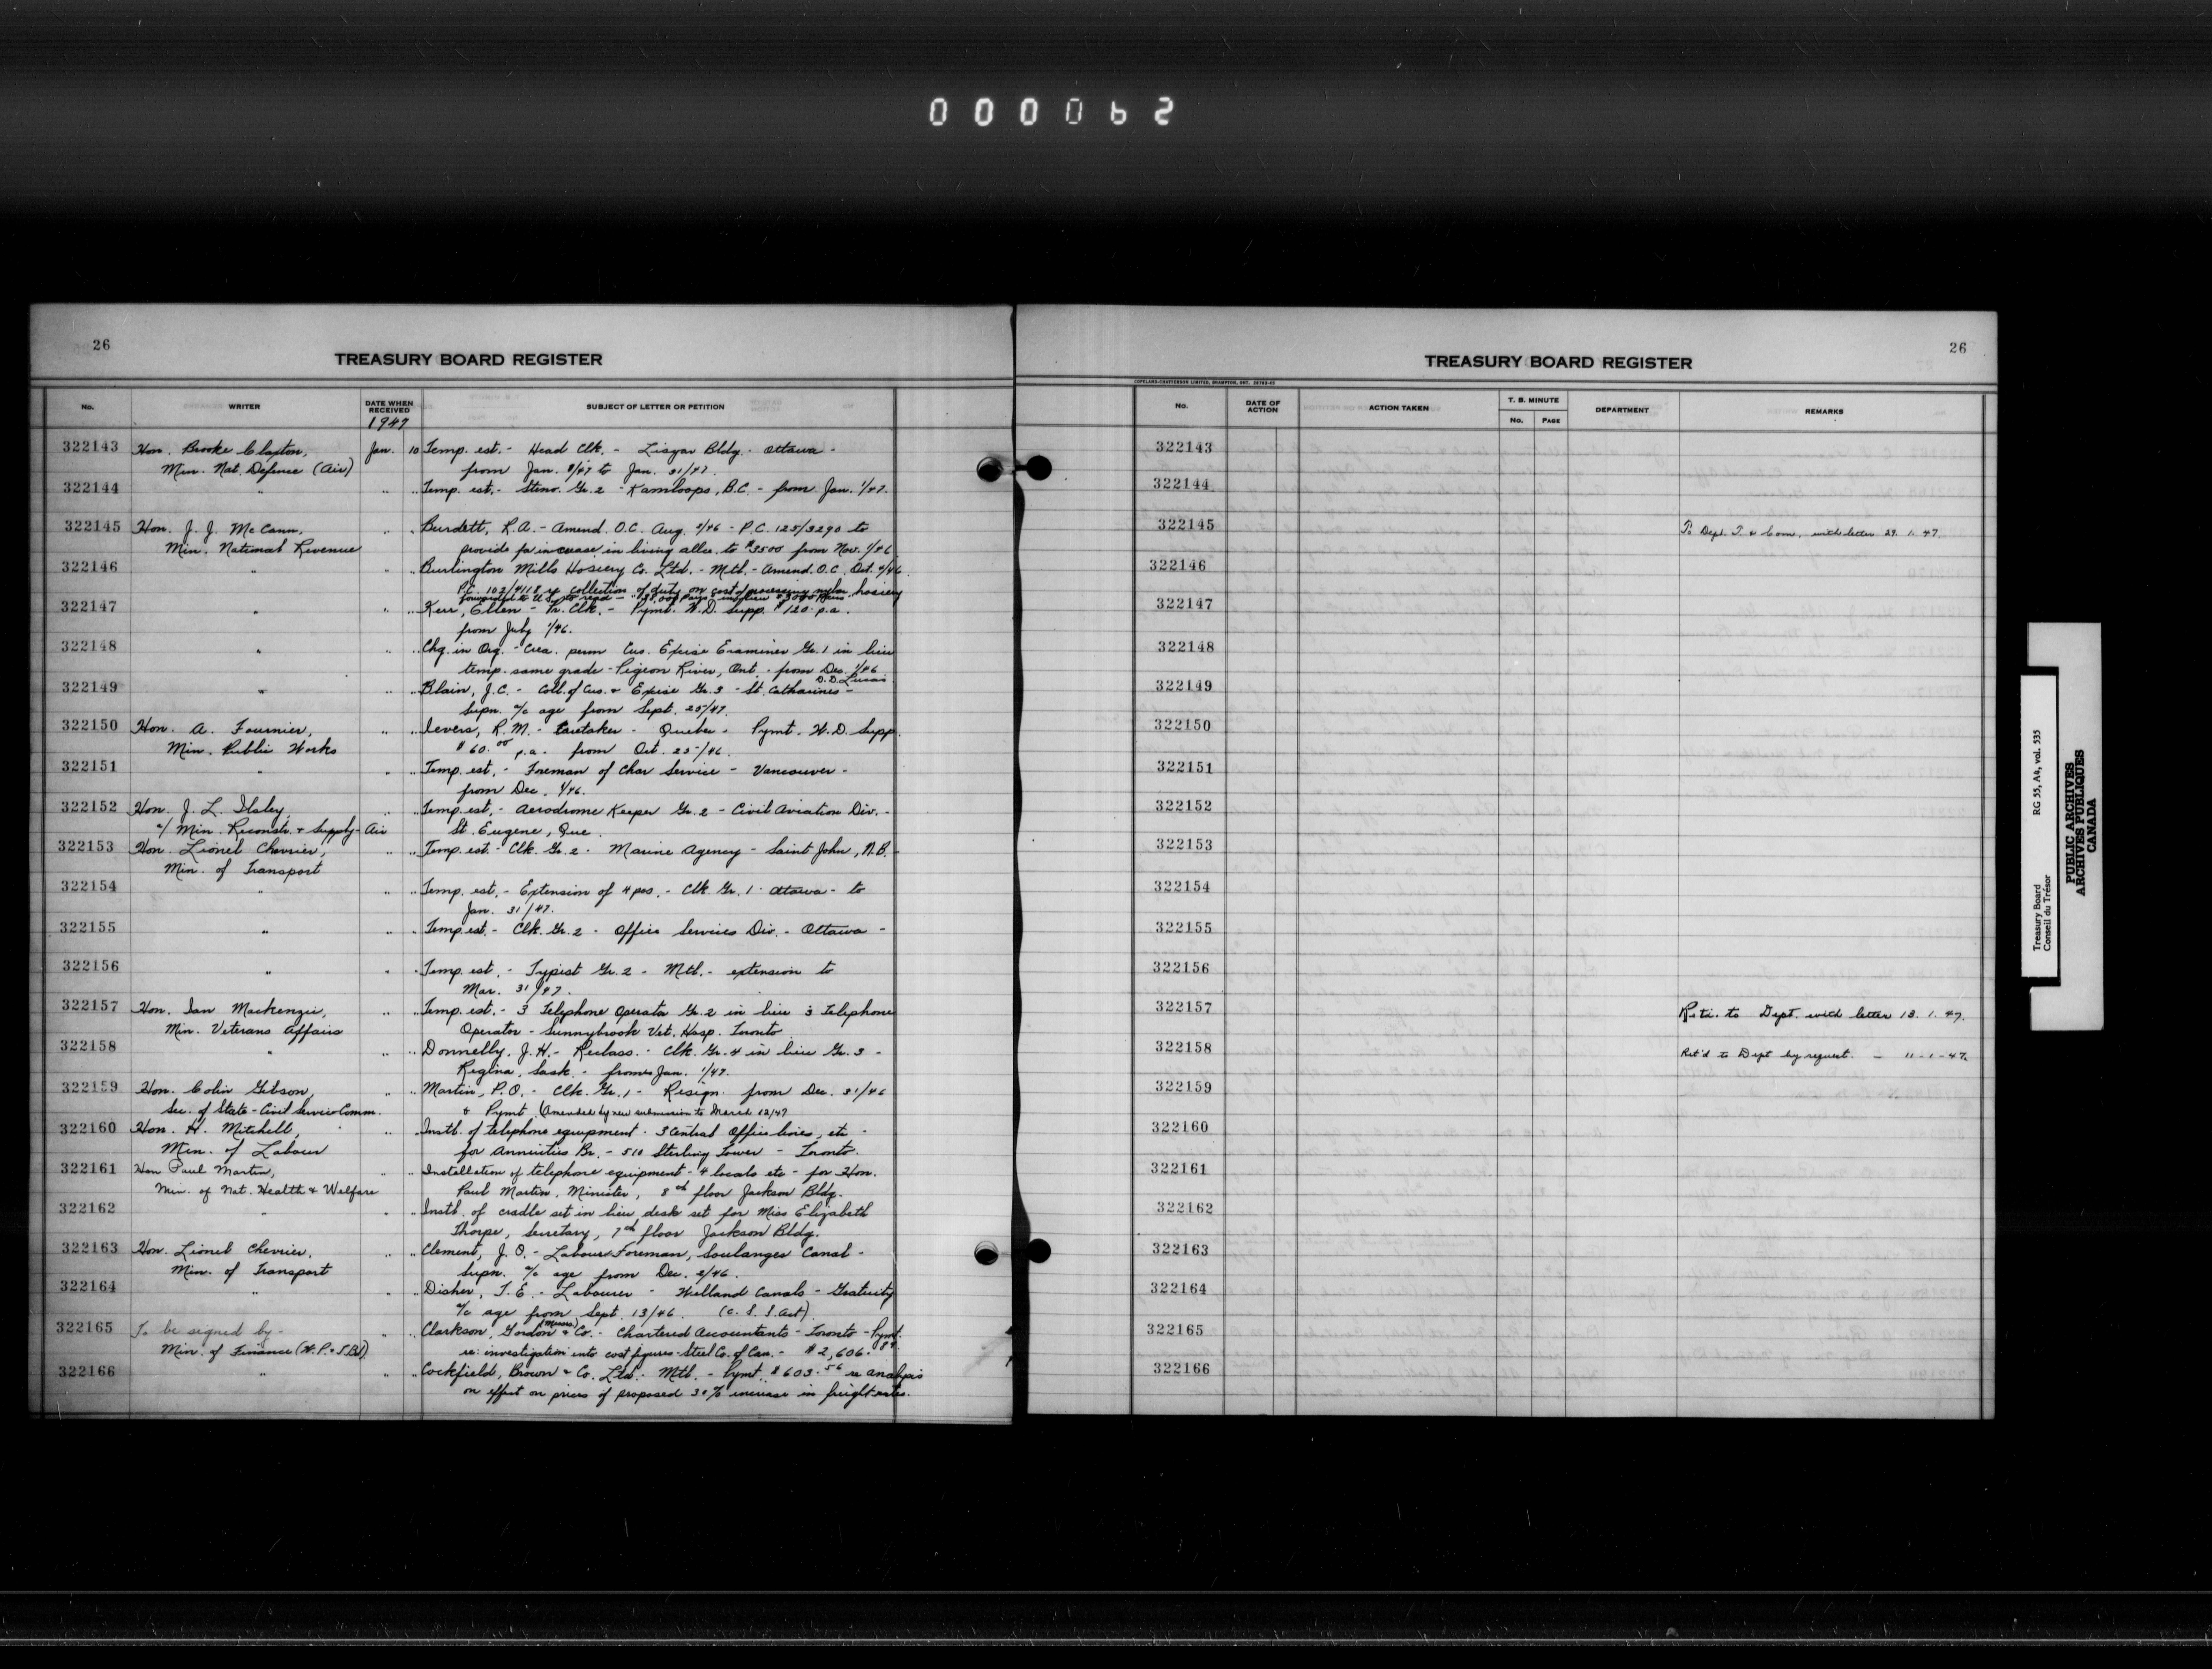 000062
26
TREASURY BOARD REGISTER
No. WRITER DATE WHEN RECEIVED SUBJECT OF LETTER OR PETITION
1947
322143 Hon. Brooke Claxton, Jan. 10 Temp. est. - Head Clk. - Lisgar Bldg. - Ottawa -
Min. Nat. Defence (Air) from Jan. 8/47 to Jan. 31/47.
322144 " " " Temp. est. - Steno. Gr. 2 - Kamloops, B.C. - from Jan. 1/47.
322145 Hon. J. J. McCann, " " Burdett, R.A. - Amend. O.C. Aug. 2/46 - P.C. 125/3290 to
Min. National Revenue provide for increase in living allce. to $3500 from Nov. 1/46
322146 " " " Burlington Mills Hosiery Co. Ltd. - Mtl. - Amend. O.C. Oct. 2/46
P.C. 102/4118 re collection of duty on cost of processing nylon hosiery
forwarded to U.S. to read -
322147 " " " Kerr, Ellen - Pr. Clk. - Pymt. W.D. Supp. $120. p.a.
from July 1/46.
322148 " " " Chg. in Org. - Crea. perm Cus. Excise Examiner Gr. 1 in lieu
temp. same grade - Pigeon River, Ont. - from Dec. 1/46
D.D. Lucas
322149 " " " Blain, J.C. - Coll. of Cus. & Excise Gr. 3 - St. Catharines -
Supn. a/c age from Sept. 25/47.
322150 Hon. A. Fournier, " " Ievers, R.M. - Caretaker - Quebec - Pymt. W.D. Supp.
Min. Public Works $60.00 p.a. from Oct. 25/46.
322151 " " " Temp. est. - Foreman of Char Service - Vancouver -
from Dec. 1/46.
322152 Hon. J. L. Ilsley, " " Temp. est. - Aerodrome Keeper Gr. 2 - Civil Aviation Div. -
a/ Min. Reconstr. & Supply - Air St. Eugene, Que.
322153 Hon. Lionel Chevrier, " " Temp. est. - Clk. Gr. 2 - Marine Agency - Saint John, N.B. -
Min. of Transport
322154 " " " Temp. est. - Extension of 4 pos. - Clk. Gr. 1 - Ottawa - to
Jan. 31/47.
322155 " " " Temp. est. - Clk. Gr. 2 - Office Services Div. - Ottawa -
322156 " " " Temp. est. - Typist Gr. 2 - Mtl. - extension to
Mar. 31/47.
322157 Hon. Ian Mackenzie, " " Temp. est. - 3 Telephone Operator Gr. 2 in lieu 3 Telephone
Min. Veterans Affairs Operator - Sunnybrook Vet. Hosp. Toronto
322158 " " " Donnelly, J.H. - Reclass. - Clk. Gr. 4 in lieu Gr. 3 -
Regina, Sask. - from Jan. 1/47.
322159 Hon. Colin Gibson, " " Martin, P.O. - Clk. Gr. 1 - Resign. from Dec. 31/46
Sec. of State - Civil Service Comm. & Pymt. (Amended by new submission to March 12/47
322160 Hon. H. Mitchell, " " Instl. of telephone equipment - 3 Central Office lines, etc -
Min. of Labour for Annuities Br. - 510 Sterling Tower - Toronto.
322161 Hon Paul Martin, " " Installation of telephone equipment - 4 locals etc - for Hon.
Min. of Nat. Health & Welfare Paul Martin, Minister, 8th floor Jackson Bldg.
322162 " " " Instl. of cradle set in lieu desk set for Miss Elizabeth
Thorpe, Secretary, 7th floor Jackson Bldg.
322163 Hon. Lionel Chevrier, " " Clement, J.O. - Labour Foreman, Soulanges Canal -
Min. of Transport Supn. a/c age from Dec. 2/46.
322164 " " " Disher, T.E. - Labourer - Welland Canals - Gratuity
a/c age from Sept. 13/46. (C.S.S. Act).
322165 To be signed by - " " Clarkson, Gordon (Messrs.) & Co. - Chartered Accountants - Toronto - Pymt.
Min. of Finance (W.P. & T.Bd) re: investigation into cost figures - Steel Co. of Can. - $2,606.84.
322166 " " " Cockfield, Brown & Co. Ltd. - Mtl. - Pymt. $603.56 re analysis
on effect on prices of proposed 30% increase in freight rates.
26
TREASURY BOARD REGISTER
COPELAND-CHATTERSON LIMITED, BRAMPTON, ONT.
No. DATE OF ACTION ACTION TAKEN T. B. MINUTE No. PAGE DEPARTMENT REMARKS
322143
322144
322145 To Dept. T. & Com. with letter 29. 1. 47.
322146
322147
322148
322149
322150
322151
322152
322153
322154
322155
322156
322157 Ret'. to Dept. with letter 13. 1. 47.
322158 Ret'd to Dept by request. - 11-1-47.
322159
322160
322161
322162
322163
322164
322165
322166
Treasury Board
Conseil du Trésor
RG 55, A4, vol. 535
PUBLIC ARCHIVES
ARCHIVES PUBLIQUES
CANADA